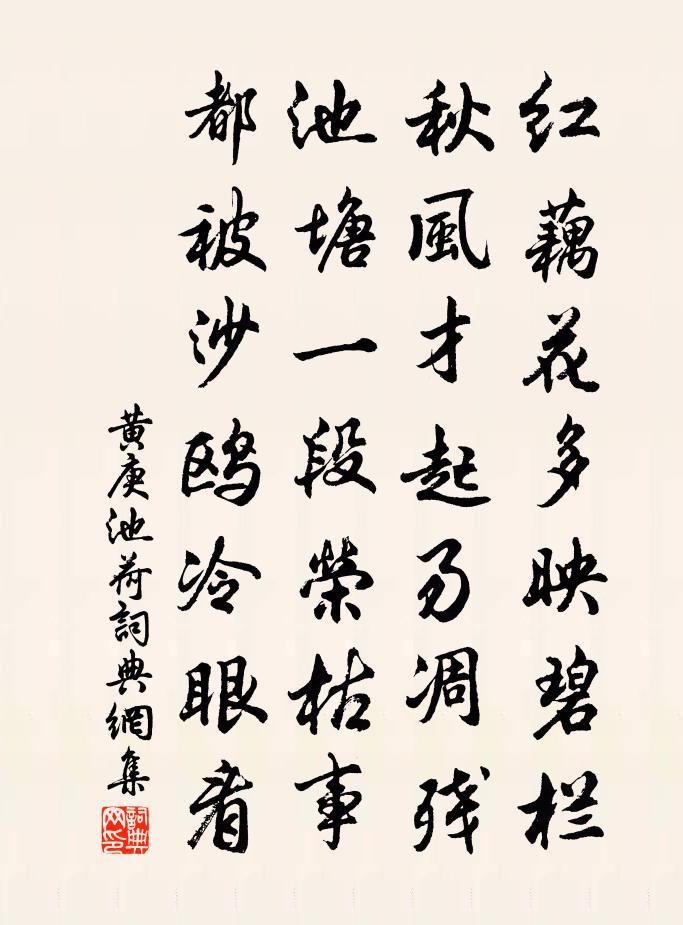 红藕花多映碧栏
秋風才起易凋残
池塘一段榮枯事
都被沙鸥冷眼看
黄庚池荷詞典網集
詞典网印